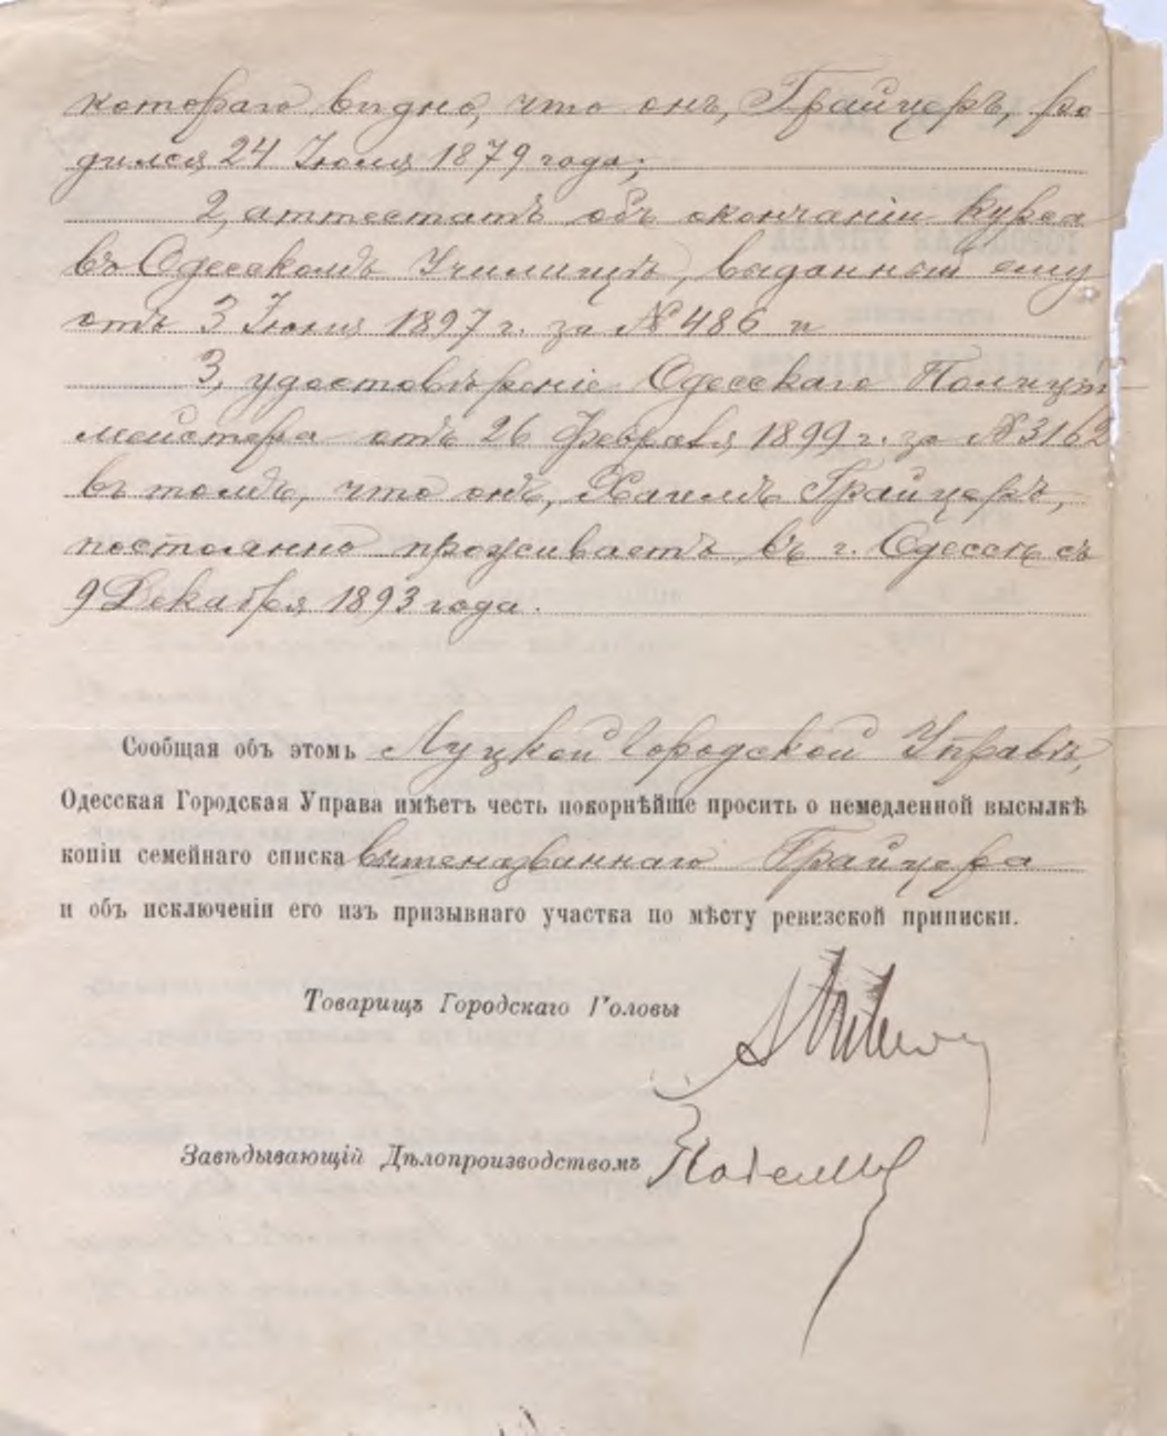 котораго видно, что онъ, Грайцеръ, ро
дился 24 Іюля 1879 года;
2, аттестатъ объ окончаніи курса
въ Одесскомъ Училищѣ, выданный ему
отъ 3 Іюня 1897 г. за № 486 и
3, удостовѣреніе Одесскаго Полицій
мейстера отъ 26 Февраля 1899 г. за № 3162
въ томъ, что онъ, Хаимъ Грайцеръ,
постоянно проживаетъ въ г. Одессѣ съ
9 Декабря 1893 года.
Сообщая объ этомъ Луцкой Городской Управѣ,
Одесская Городская Управа имѣетъ честь покорнѣйше просить о немедленной высылкѣ
копіи семейнаго списка вышеназваннаго Грайцера
и объ исключеніи его изъ призывнаго участка по мѣсту ревизской приписки.
Товарищъ Городскаго Головы
Завѣдывающій Дѣлопроизводствомъ